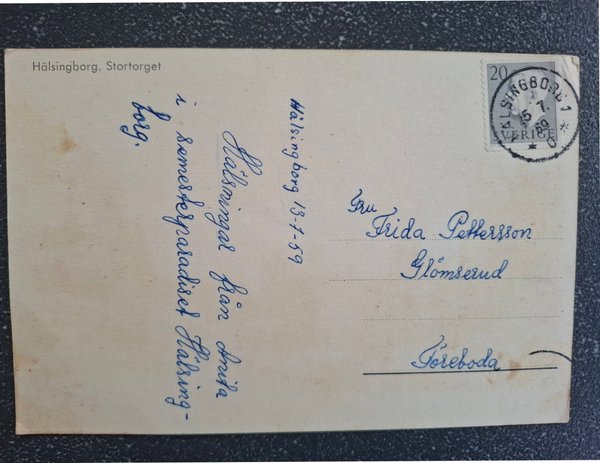 Hälsingborg, Stortorget
Hälsingborg 13-7-59
Hälsningar från Anita
i semesterparadiset Hälsing-
borg.
20
SVERIGE
HÄLSINGBORG 1
15 7
59
Fru
Frida Pettersson
Glömserud
Töreboda